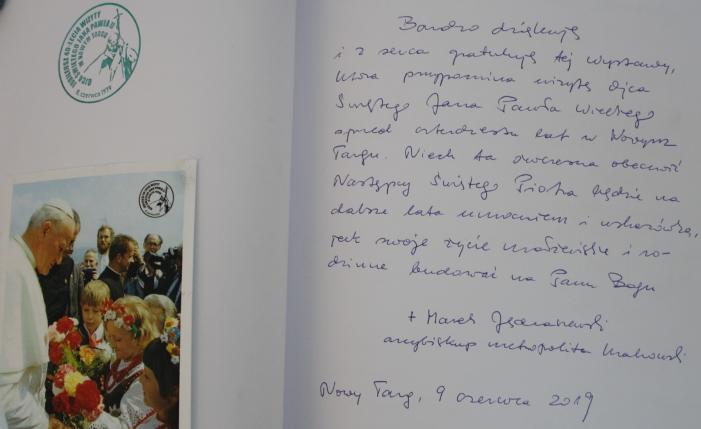 JUBILEUSZ 40-LECIA WIZYTY
OJCA ŚWIĘTEGO JANA PAWŁA II
W NOWYM TARGU
8 czerwca 1979
Bardzo dziękuję
i z serca gratuluję tej wystawy,
która przypomina wizytę Ojca
Świętego Jana Pawła Wielkiego
sprzed czterdziestu lat w Nowym
Targu. Niech ta ówczesna obecność
Następcy Świętego Piotra będzie na
dalsze lata umocnieniem i wskazówką,
jak swoje życie małżeńskie i ro-
dzinne budować na Panu Bogu
+ Marek Jędraszewski
arcybiskup metropolita krakowski
Nowy Targ, 9 czerwca 2019